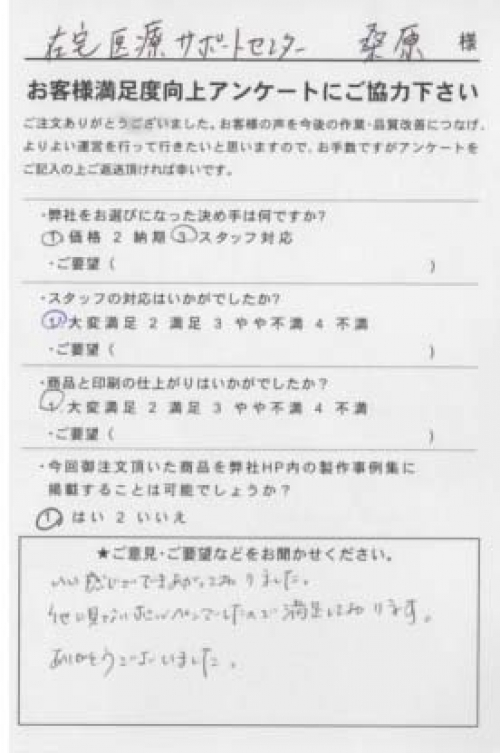 在宅医療サポートセンター 桑原 様
お客様満足度向上アンケートにご協力下さい
ご注文ありがとうございました。お客様の声を今後の作業・品質改善につなげ、
よりよい運営を行って行きたいと思いますので、お手数ですがアンケートを
ご記入の上ご返送頂ければ幸いです。
・弊社をお選びになった決め手は何ですか?
1 価格 2 納期 3 スタッフ対応
・ご要望( )
・スタッフの対応はいかがでしたか?
1 大変満足 2 満足 3 やや不満 4 不満
・ご要望( )
・商品と印刷の仕上がりはいかがでしたか?
1 大変満足 2 満足 3 やや不満 4 不満
・ご要望( )
・今回御注文頂いた商品を弊社HP内の製作事例集に
掲載することは可能でしょうか?
1 はい 2 いいえ
★ご意見・ご要望などをお聞かせください。
いい感じでできあがっておりました。
他に見ないボールペンでしたので満足しております。
ありがとうございました。